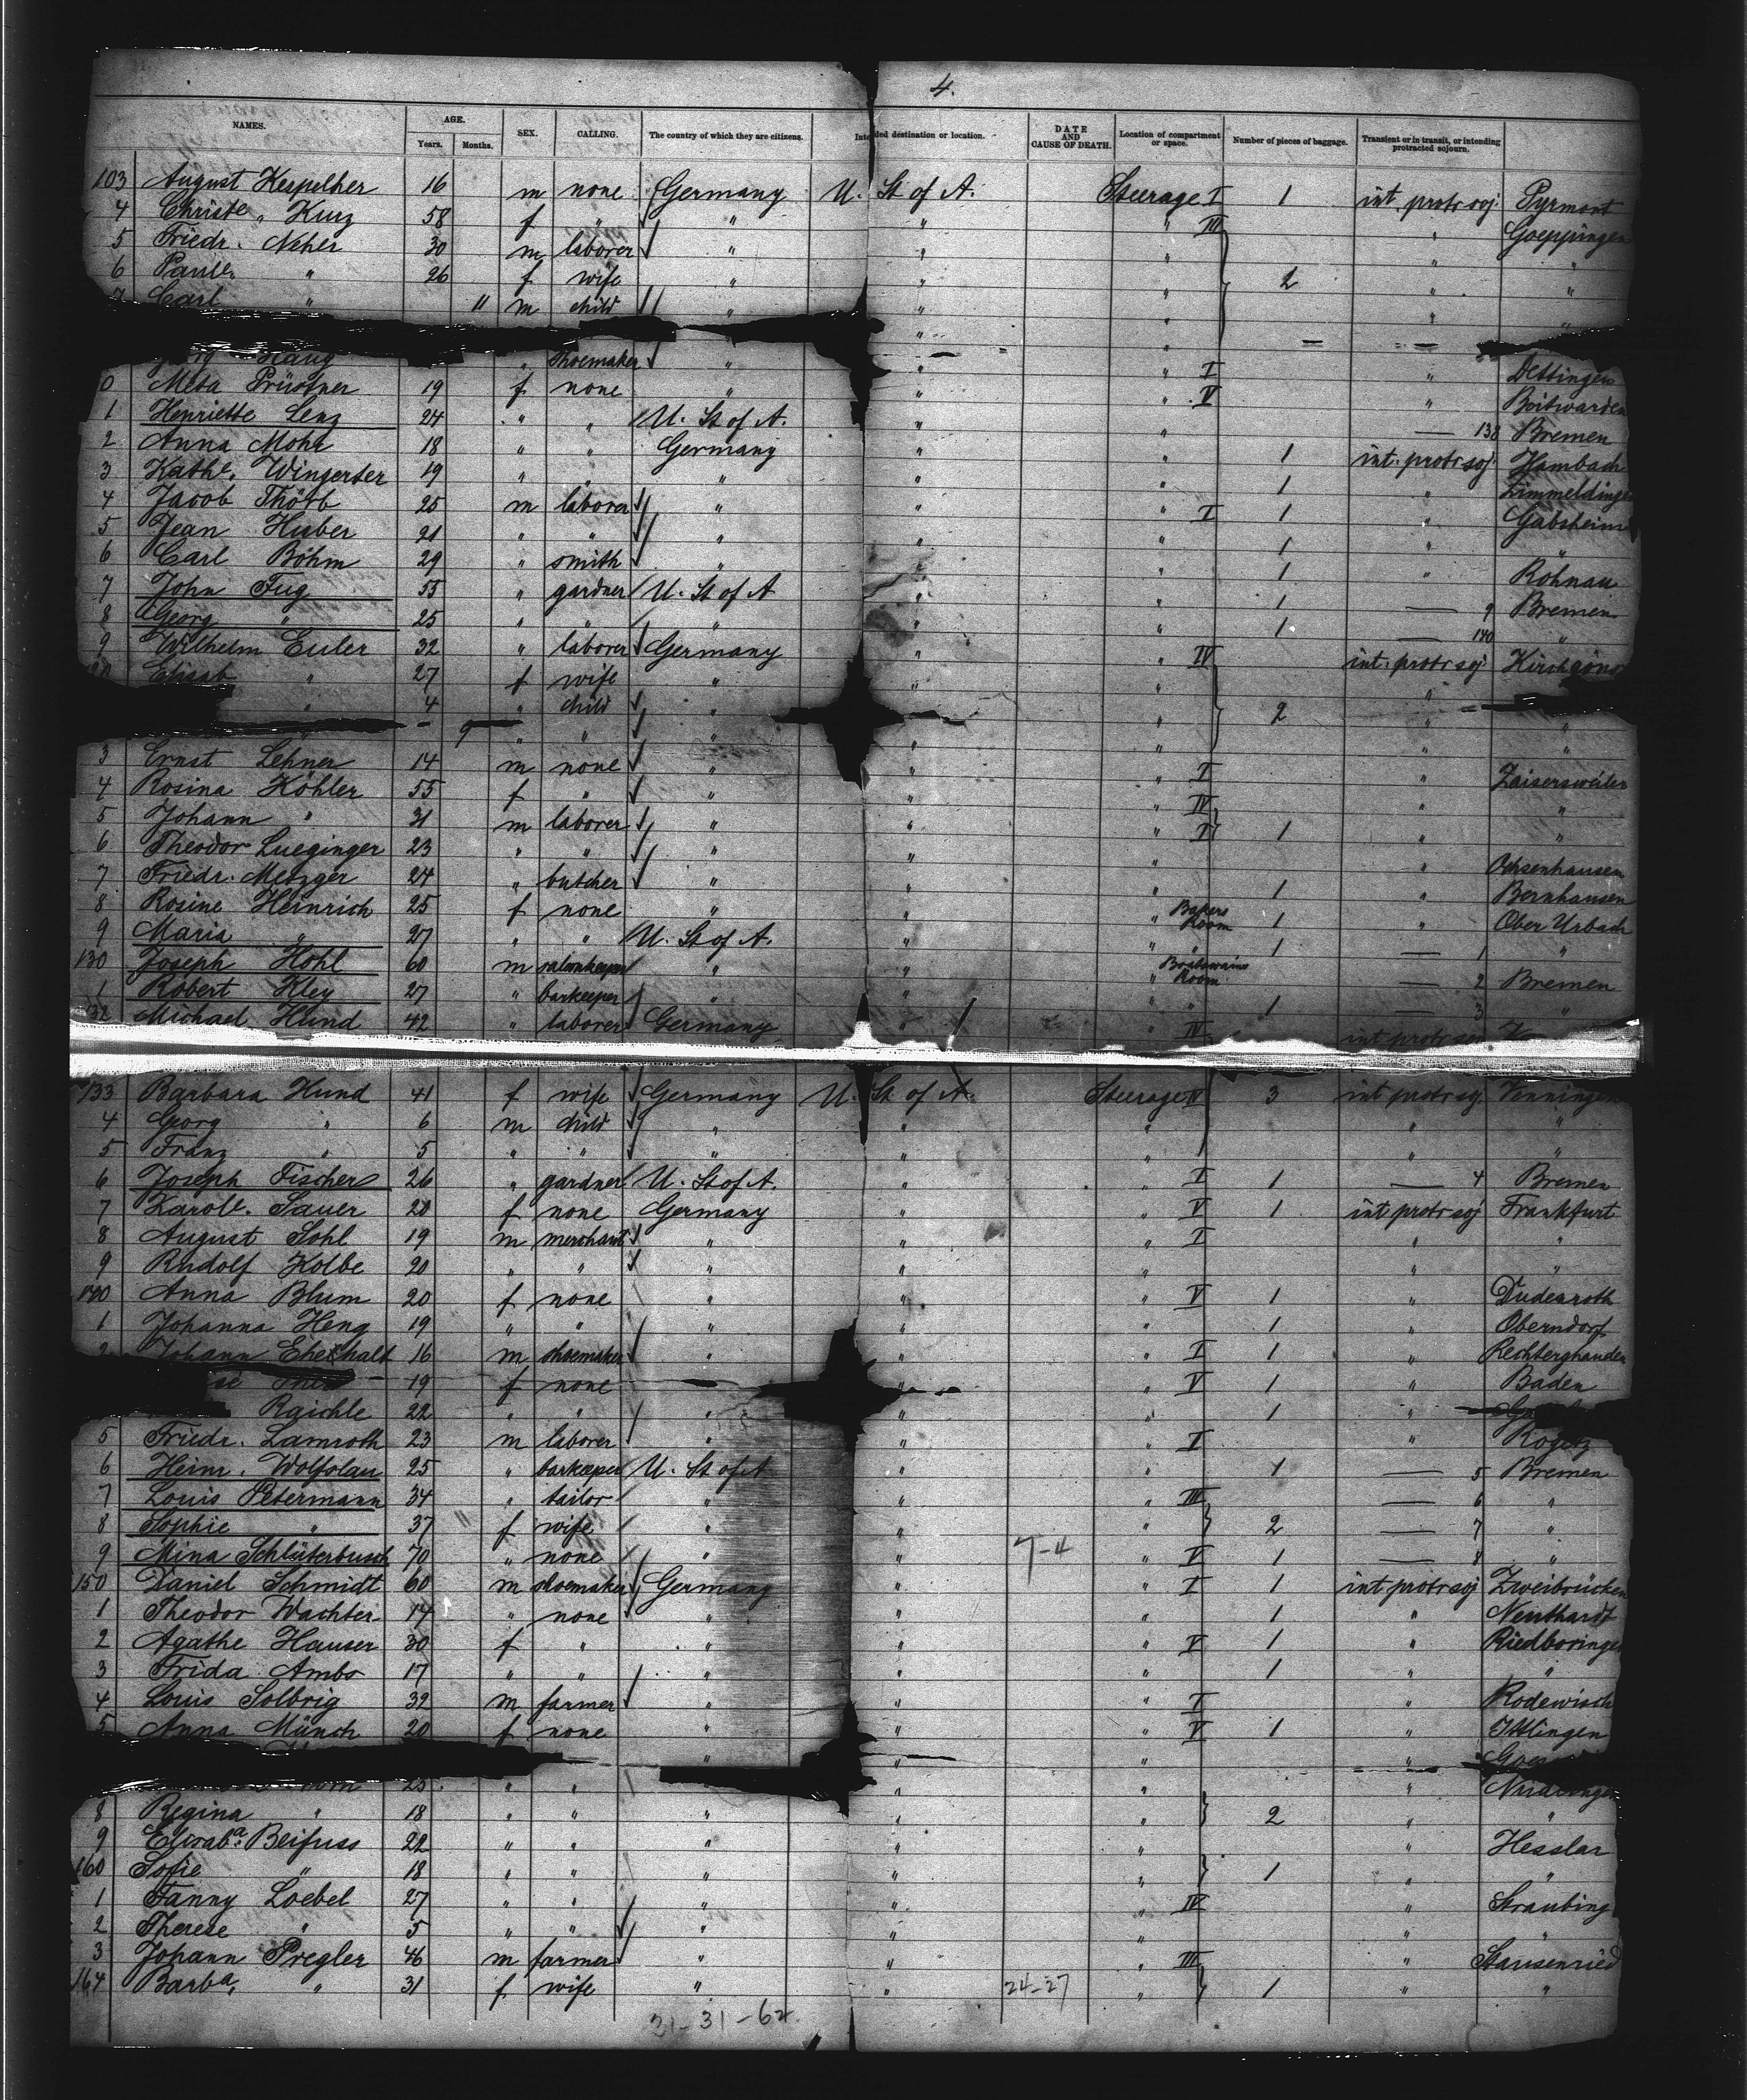 4.
NAMES. AGE. SEX. CALLING. The country of which they are citizens. Intended destination or location. DATE AND CAUSE OF DEATH. Location of compartment or space. Number of pieces of baggage. Transient or in transit, or intending protracted sojourn.
Years. Months.
103 August 16 m none Germany U. St of A. Steerage I 1 int. protr soj. Pyrmont
4 Christe „ Kurz 58 f „ „ „ „ III „ Goeppingen
5 Friedr. Neher 30 m laborer „ „ „ „ „
6 Paule. „ 26 f wife „ „ „ 2 „ „
7 Carl „ 11 m child „ „ „ „ „
Haug „ shoemaker „ „ „ I „ Dettingen
0 Meta Prüstner 19 f none „ „ „ V „ Boitwarden
1 Henriette Lenz 24 „ „ U. St of A. „ „ — 138 Bremen
2 Anna Mohr 18 „ „ Germany „ „ 1 int. protr soj. Hambach
3 Kathe. Wingerter 19 „ „ „ „ „ 1 „ Gimmeldingen
4 Jacob Thörb 25 m laborer „ „ „ I 1 „ Gabsheim
5 Jean Huber 21 „ „ „ „ „ 1 „ „
6 Carl Böhm 29 „ smith „ „ „ 1 „ Röhnau
7 John Fug 55 „ gardner U. St of A „ „ 1 — 9 Bremen
8 Georg „ 25 „ „ „ „ „ 1 — 140 „
9 Wilhelm Euler 32 „ laborer Germany „ „ IV int. protr soj. Kirchgöns
120 Elisab „ 27 f wife „ „ „ „ „
„ 4 „ child „ „ „ 2 „ „
9 „ „ „ „ „ „ „
3 Ernst Lehner 14 m none „ „ „ I „ Zaisersweiler
4 Rosina Köhler 55 f „ „ „ „ IV „ „
5 Johann „ 31 m laborer „ „ „ I 1 „ „
6 Theodor Lueginger 23 „ „ „ „ „ „ Ochsenhausen
7 Friedr. Metzger 24 „ butcher „ „ „ 1 „ Bernhausen
8 Rosine Heinrich 25 f none „ „ „ Bakers Room 1 „ Ober Urbach
9 Maria „ 27 „ „ U. St of A. „ „ „ 1 — 1 „
130 Joseph Hohl 60 m saloonkeeper „ „ „ Boatswains Room — 2 Bremen
1 Robert Kley 27 „ barkeeper „ „ „ „ 1 — 3 „
132 Michael Hund 42 „ laborer Germany „ „ IV int protr soj
133 Barbara Hund 41 f wife Germany U. St of A. Steerage IV 3 int protr soj. Venningen
4 Georg „ 6 m child „ „ „ „ „
5 Franz „ 5 „ „ „ „ „ „ „
6 Joseph Fischer 26 „ gardner U. St of A. „ „ I 1 — 4 Bremen
7 Karole. Sauer 20 f none Germany „ „ V 1 int protr soj Frankfurt
8 August Sohl 19 m merchant „ „ „ I „ „
9 Rudolf Kolbe 20 „ „ „ „ „ „ „
140 Anna Blum 20 f none „ „ „ V 1 „ Dudenroth
1 Johanna Heng 19 „ „ „ „ „ 1 „ Oberndorf
2 Johann Ehehalt 16 m shoemaker „ „ „ I 1 „
19 f none „ „ V 1 „ Baden
Raichle 22 „ „ „ „ „ 1 „
5 Friedr. Lamroth 23 m laborer „ „ „ I „ Rogätz
6 Heinr. Wolfolau 25 „ barkeeper U. St of A „ „ 1 — 5 Bremen
7 Louis Petermann 34 „ tailor „ „ „ III — 6 „
8 Sophie „ 37 „ f wife „ „ „ 2 — 7 „
9 Mina Schlüterbusch 70 „ none „ „ 7-4 „ V 1 — 8 „
150 Daniel Schmidt 60 m shoemaker Germany „ „ I 1 int protr soj Zweibrücken
1 Theodor Wachter 14 „ none „ „ „ 1 „ Neuthardt
2 Agathe Hauser 30 f „ „ „ „ V 1 „ Riedböringen
3 Frida Ambs 17 „ „ „ „ „ 1 „ „
4 Louis Solbrig 32 m farmer „ „ „ I „ Rodewisch
5 Anna Münch 20 f none „ „ „ V 1 „ Ittlingen
„ „ „
25 „ „ „ „
8 Regina „ 18 „ „ „ „ „ 2 „ „
9 Elisaba. Beifuss 22 „ „ „ „ „ „ Hesslar
160 Sofie „ 18 „ „ „ „ „ 1 „ „
1 Fanny Loebel 27 „ „ „ „ „ IV „ Straubing
2 Therese „ 5 „ „ „ „ „ „ „
3 Johann Pregler 46 m farmer „ „ „ III „ Stausenried
164 Barba. „ 31 f wife „ „ 24-27 „ 1 „ „
31-31-62.